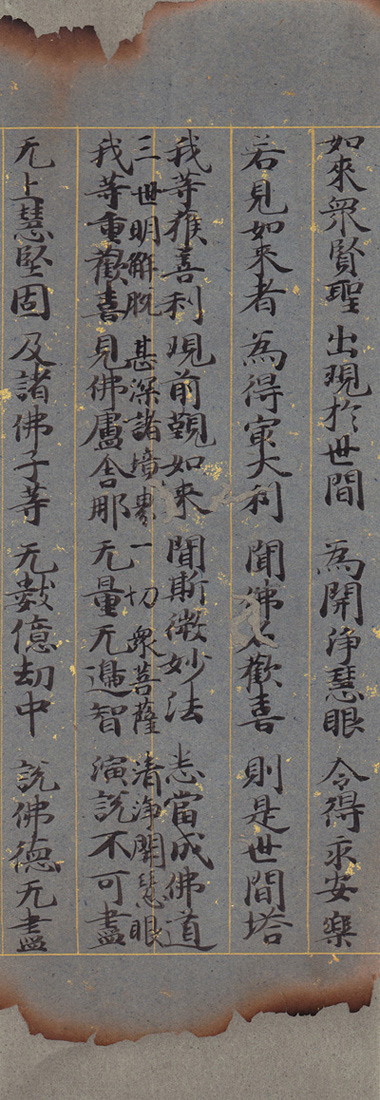 如來衆賢聖 出現於世間 為開淨慧眼 令得永安樂
若見如來者 為得冣大利 聞佛名歡喜 則是世間塔
我等獲善利 現前覲如來 聞斯微妙法 悉當成佛道
三世明解脫 甚深諸境界 一切衆菩薩 清淨開慧眼
我等重歡喜 見佛盧舍那 无量无邊智 演說不可盡
无上慧堅固 及諸佛子等 无數億劫中 說佛德无盡